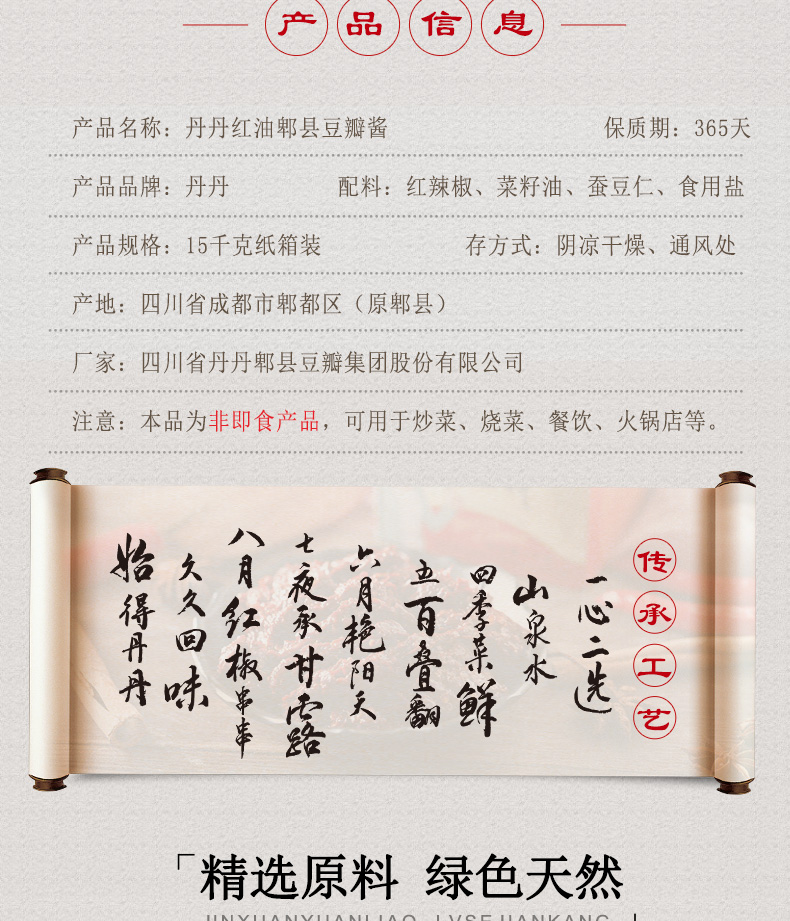 产品信息
产品名称：丹丹红油郫县豆瓣酱 保质期：365天
产品品牌：丹丹 配料：红辣椒、菜籽油、蚕豆仁、食用盐
产品规格：15千克纸箱装 存方式：阴凉干燥、通风处
产地：四川省成都市郫都区（原郫县）
厂家：四川省丹丹郫县豆瓣集团股份有限公司
注意：本品为非即食产品，可用于炒菜、烧菜、餐饮、火锅店等。
传承工艺
一心二选
山泉水
四季菜鲜
五百叠翻
六月艳阳天
七夜承甘露
八月红椒串串
久久回味
始得丹丹
「精选原料 绿色天然
JINXUANYUANLIAO LVSEJIANKANG